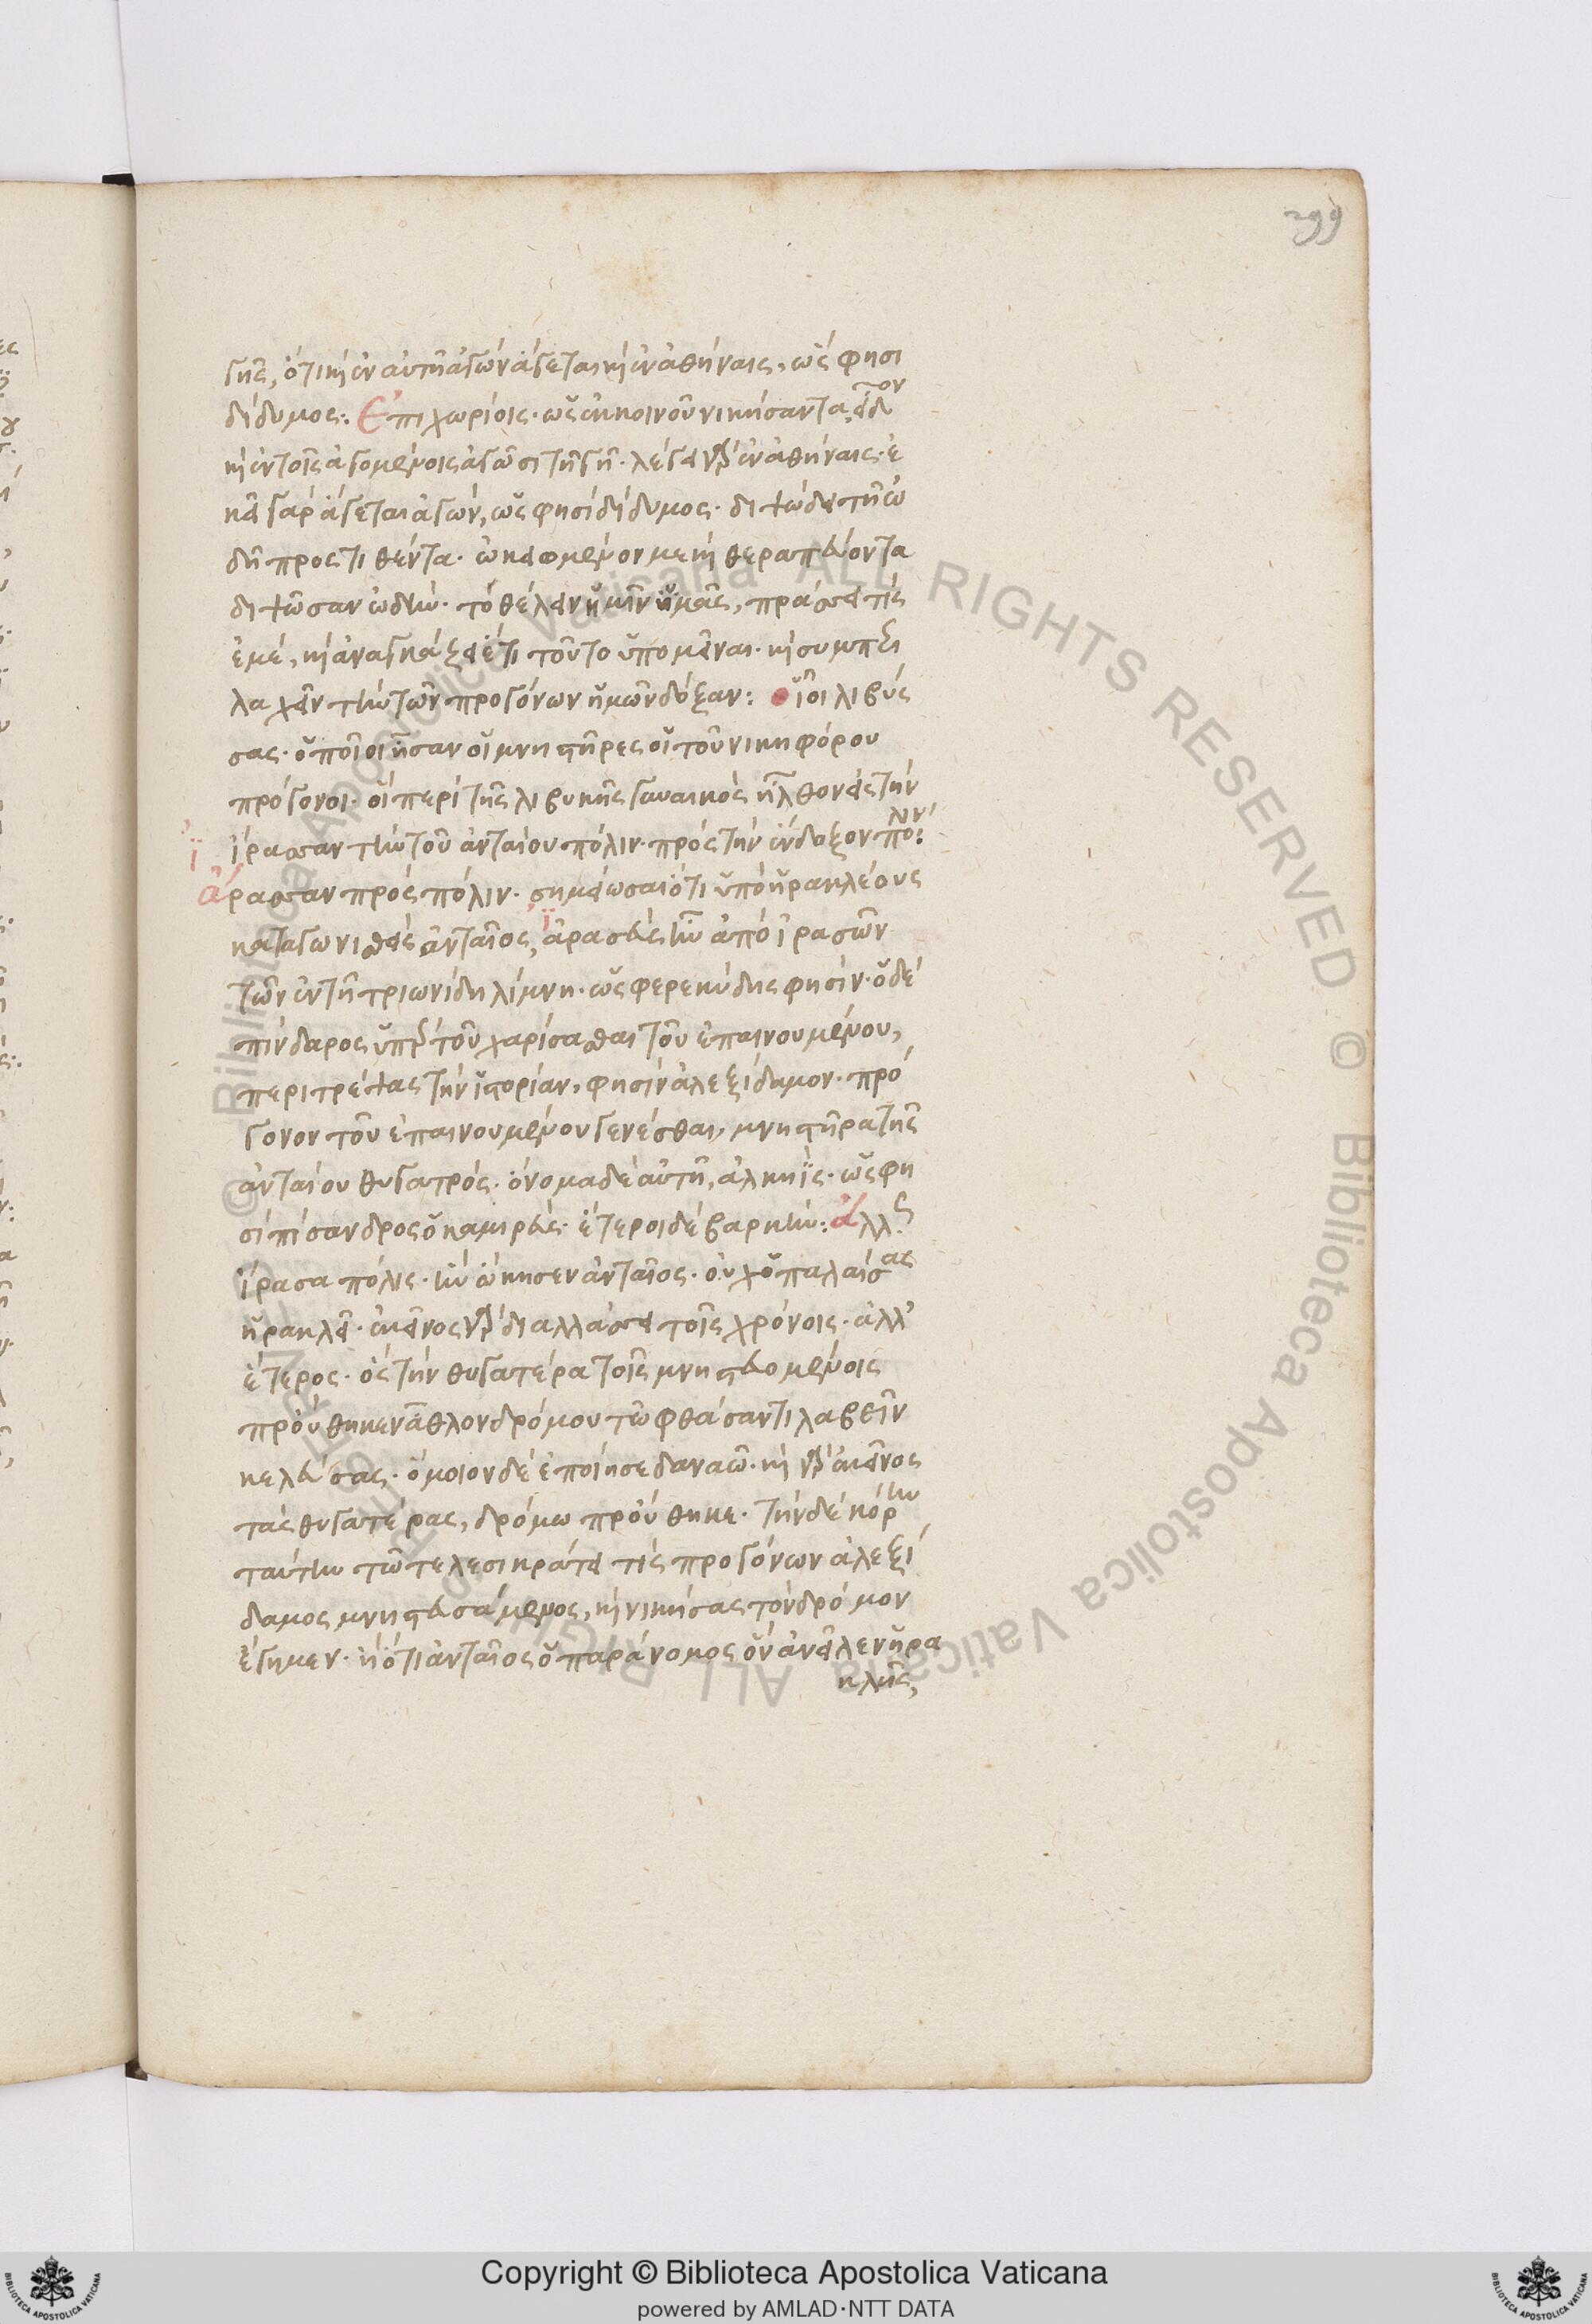 299
γῆς, ὅτι καὶ ἐν αὐτῆ ἀγὼν ἄγεται καὶ ἐν ἀθήναις, ὥς φησι
δίδυμος: Ἐπιχωρίοις· ὡς ἐκ κοινοῦ νικήσαντα εἶδον
καὶ ἐν τοῖς ἀγομένοις ἀγῶσι τῆ γῆ· λέγει γὰρ ἐν ἀθήναις· ἐ
κεῖ γὰρ ἄγεται ἀγών, ὥς φησὶ δίδυμος· διψώδει τῆ ὠ
δῆ προστιθέντα· ἀκεόμενόν με καὶ θεραπεύοντα
διψῶσαν ὠδήν· τὸ θέλειν ὑμῖν ὑμᾶς, πράσσει τίς
ἐμέ, καὶ ἀναγκάζει ἔτι τοῦτο ὑπομεῖναι· καὶ
λαχεῖν τὴν τῶν προγόνων ὑμῶν δόξαν: οἷοι λιβύς
σας· ὁποῖοι ἦσαν οἱ μνηστῆρες οἱ τοῦ νικηφόρου
πρόγονοι· οἳ περὶ τῆς λιβυκῆς γυναικὸς ἦλθον εἰς τὴν
ἴρασσαν τὴν τοῦ ἀνταίου πόλιν· πρὸς τὴν ἔνδοξον πόλιν:
ἄρασσαν πρὸς πόλιν· σημείωσαι ὅτι ὑπὸ ἡρακλέους
καταγωνισθεὶς ἀνταῖος, ἀρασεὺς ἦν ἀπὸ ἰρασῶν
τῶν ἐν τῆ τριωνίδη λίμνη· ὡς φερεκύδης φησίν· ὁ δὲ
πίνδαρος ὑπὲρ τοῦ χαρίσασθαι τοῦ ἐπαινουμένου,
περιτρέψας τὴν ἱστορίαν, φησὶν ἀλεξίδαμον· πρό
γονον τοῦ ἐπαινουμένου γενέσθαι, μνηστῆρα τῆς
ἀνταίου θυγατρός· ὄνομα δὲ αὐτῆ, ἀλκηΐς· ὥς φη
σὶ πίσανδρος ὁ καμιρεύς· ἕτεροι δὲ βαρκην: ἄλλως
ἴρασα πόλις· ἣν ὤκησεν ἀνταῖος· οὐχ ὁ παλαίσας
ἡρακλεῖ· ἐκεῖνος γὰρ διαλλάσσει τοῖς χρόνοις· ἀλλ’
ἕτερος· ὃς τὴν θυγατέρα τοῖς μνηστευομένοις
προὔθηκεν ἆθλον δρόμου τῶ φθάσαντι λαβεῖν
κελεύσας· ὅμοιον δὲ ἐποίησε δαναῶ· καὶ γὰρ ἐκεῖνος
τὰς θυγατέρας, δρόμω προὔθηκε· τὴν δὲ κόρην
ταύτην τῶ τελεσικράτει τίς προγόνων ἀλεξί
δαμος μνηστευσάμενος, καὶ νικήσας τὸν δρόμον
ἔγημεν· ἢ ὅτι ἀνταῖος ὁ παράνομος ὃν ἀνεῖλεν ἡρα
κλῆς,
Copyright © Biblioteca Apostolica Vaticana
powered by AMLAD·NTT DATA